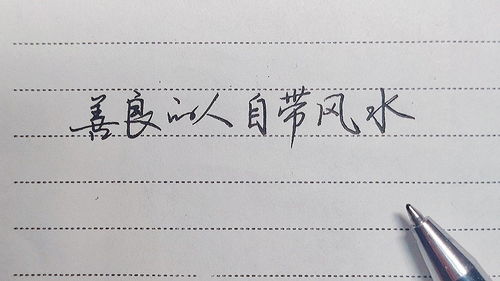 善良的人自带风水